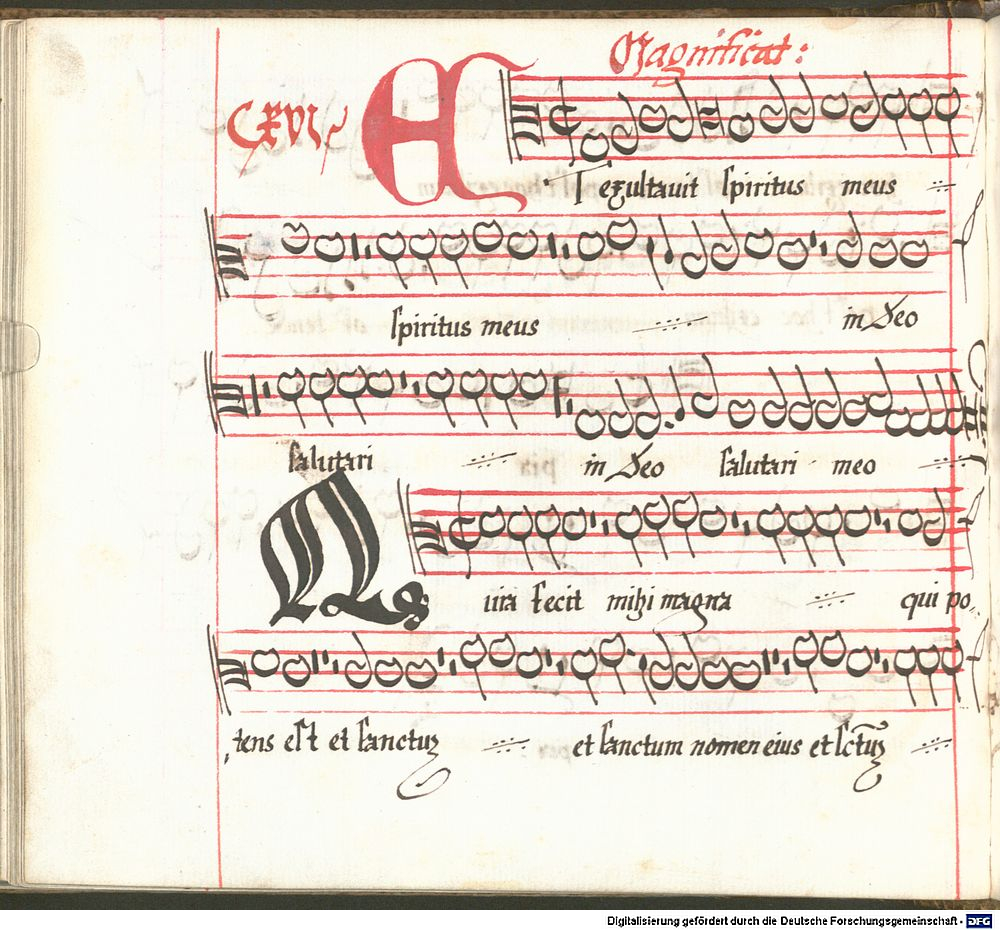 Magnificat:
CXVI
ET exultauit spiritus meus
spiritus meus in Deo
salutari in Deo salutari meo
Quia fecit mihi magna qui po
tens est et sanctuz et sanctum nomen eius et sctuz
Digitalisierung gefördert durch die Deutsche Forschungsgemeinschaft - DFG